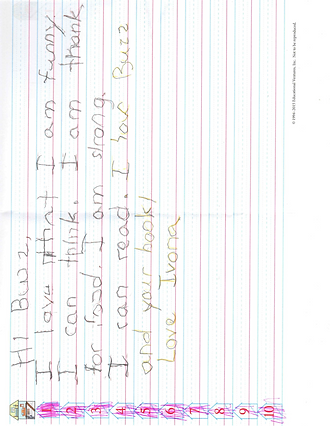 Hi Buzz,
I love that I am funny.
I can think. I am thank
for food. I am strong.
I can read. I love Buzz
and your book!
Love Ivona
1
2
3
4
5
6
7
8
9
10
© 1996-2013 Educational Ventures, Inc. Not to be reproduced.